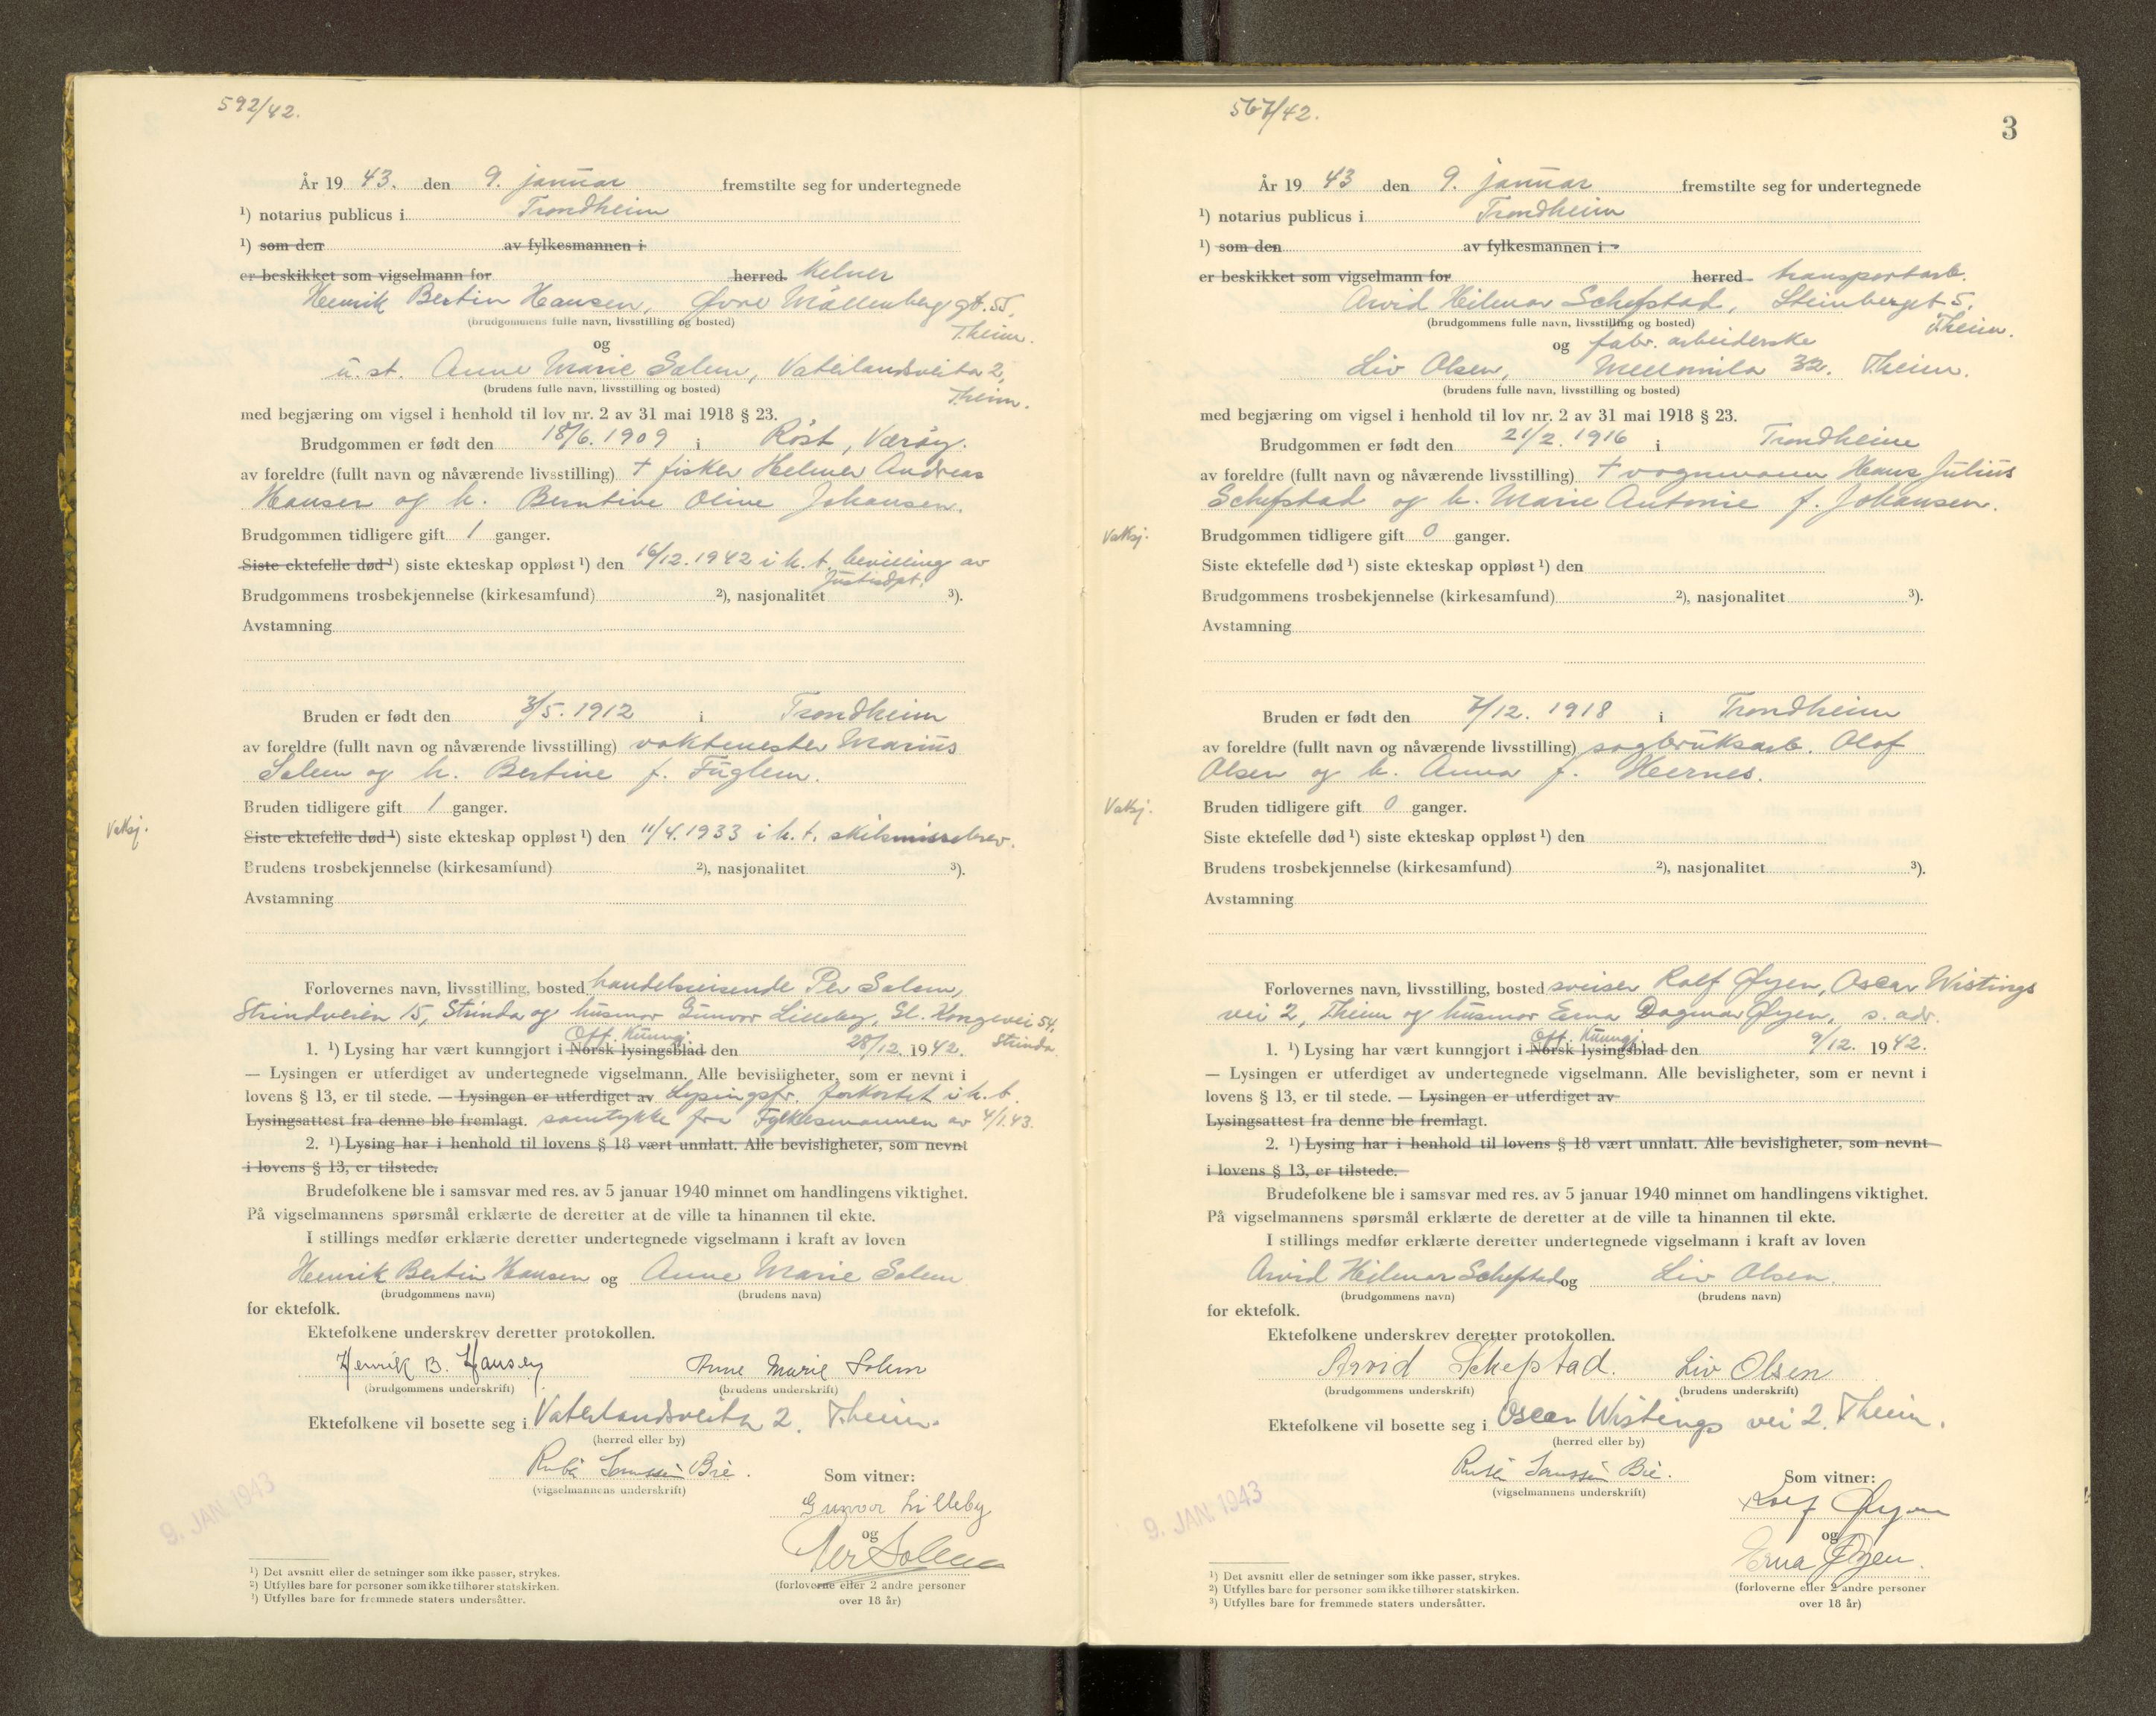 592/42.
År 19 43. den 9. januar fremstilte seg for undertegnede
¹) notarius publicus i Trondheim
¹) som den av fylkesmannen i
er beskikket som vigselmann for herred. Kelner
Henrik Bertin Hansen, Øvre Møllenberg gt. 55,
(brudgommens fulle navn, livsstilling og bosted)
T.heim.
og
u. st. Anne Marie Solem, Vaterlandsveita 2,
(brudens fulle navn, livsstilling og bosted)
T.heim.
med begjæring om vigsel i henhold til lov nr. 2 av 31 mai 1918 § 23.
Brudgommen er født den 18/6. 1909 i Röst, Værøy.
av foreldre (fullt navn og nåværende livsstilling) † fisker Helmer Andreas
Hansen og h. Berntine Oline Johansen.
Brudgommen tidligere gift 1 ganger.
Siste ektefelle død ¹) siste ekteskap oppløst ¹) den 16/12. 1942 i h. t. bevilling av
Justisdpt.
Brudgommens trosbekjennelse (kirkesamfund) ²), nasjonalitet ³).
Avstamning
Bruden er født den 3/5. 1912 i Trondheim
av foreldre (fullt navn og nåværende livsstilling) vaktmester Marius
Solem og h. Bertine f. Fuglem.
Bruden tidligere gift 1 ganger.
Vaksj.
Siste ektefelle død ¹) siste ekteskap oppløst ¹) den 11/4. 1933 i h. t. skilsmissebrev.
Brudens trosbekjennelse (kirkesamfund) ²), nasjonalitet ³).
Avstamning
Forlovernes navn, livsstilling, bosted handelsreisende Per Solem,
Strindveien 15, Strinda og husmor Gunvor Lilleby, Gl. Kongevei 54,
Strinda
Off. Kunngj.
1. ¹) Lysing har vært kunngjort i Norsk lysingsblad den 28/12. 1942.
— Lysingen er utferdiget av undertegnede vigselmann. Alle bevisligheter, som er nevnt i
lovens § 13, er til stede. — Lysingen er utferdiget av Lysingsfr. forkortet i h. t.
Lysingsattest fra denne ble fremlagt. samtykke fra Fylkesmannen av 4/1.43.
2. ¹) Lysing har i henhold til lovens § 18 vært unnlatt. Alle bevisligheter, som nevnt
i lovens § 13, er tilstede.
Brudefolkene ble i samsvar med res. av 5 januar 1940 minnet om handlingens viktighet.
På vigselmannens spørsmål erklærte de deretter at de ville ta hinannen til ekte.
I stillings medfør erklærte deretter undertegnede vigselmann i kraft av loven
Henrik Bertin Hansen og Anne Marie Solem
(brudgommens navn) (brudens navn)
for ektefolk.
Ektefolkene underskrev deretter protokollen.
Henrik B. Hansen Anne Marie Solem
(brudgommens underskrift) (brudens underskrift)
Ektefolkene vil bosette seg i Vaterlandsveita 2. T.heim.
(herred eller by)
(vigselmannens underskrift)
Som vitner:
Gunvor Lilleby
og
Per Solem
(forloverne eller 2 andre personer
over 18 år)
9. JAN. 1943
¹) Det avsnitt eller de setninger som ikke passer, strykes.
²) Utfylles bare for personer som ikke tilhører statskirken.
³) Utfylles bare for fremmede staters undersåtter.
567/42.
3
År 19 43 den 9. januar fremstilte seg for undertegnede
¹) notarius publicus i Trondheim
¹) som den av fylkesmannen i
er beskikket som vigselmann for herred transportarb.
Arvid Hilmar Schefstad, Steinberget 5,
(brudgommens fulle navn, livsstilling og bosted)
T.heim.
og fabr. arbeiderske
Liv Olsen, Mellomila 32. T.heim.
(brudens fulle navn, livsstilling og bosted)
med begjæring om vigsel i henhold til lov nr. 2 av 31 mai 1918 § 23.
Brudgommen er født den 21/2. 1916 i Trondheim
av foreldre (fullt navn og nåværende livsstilling) † vognmann Hans Julius
Schefstad og h. Marie Antonie f. Johansen.
Vaksj.
Brudgommen tidligere gift 0 ganger.
Siste ektefelle død ¹) siste ekteskap oppløst ¹) den
Brudgommens trosbekjennelse (kirkesamfund) ²), nasjonalitet ³).
Avstamning
Bruden er født den 7/12. 1918 i Trondheim
av foreldre (fullt navn og nåværende livsstilling) sagbruksarb. Olof
Olsen og h. Anna f. Heernes.
Vaksj.
Bruden tidligere gift 0 ganger.
Siste ektefelle død ¹) siste ekteskap oppløst ¹) den
Brudens trosbekjennelse (kirkesamfund) ²), nasjonalitet ³).
Avstamning
Forlovernes navn, livsstilling, bosted sveiser Rolf Øyen, Oscar Wistings
vei 2, T.heim og husmor Erna Dagmar Øyen, s. adr.
Off. Kunngj.
1. ¹) Lysing har vært kunngjort i Norsk lysingsblad den 9/12. 1942.
— Lysingen er utferdiget av undertegnede vigselmann. Alle bevisligheter, som er nevnt i
lovens § 13, er til stede. — Lysingen er utferdiget av
Lysingsattest fra denne ble fremlagt.
2. ¹) Lysing har i henhold til lovens § 18 vært unnlatt. Alle bevisligheter, som nevnt
i lovens § 13, er tilstede.
Brudefolkene ble i samsvar med res. av 5 januar 1940 minnet om handlingens viktighet.
På vigselmannens spørsmål erklærte de deretter at de ville ta hinannen til ekte.
I stillings medfør erklærte deretter undertegnede vigselmann i kraft av loven
Arvid Hilmar Schefstad og Liv Olsen.
(brudgommens navn) (brudens navn)
for ektefolk.
Ektefolkene underskrev deretter protokollen.
Arvid Schefstad. Liv Olsen
(brudgommens underskrift) (brudens underskrift)
Ektefolkene vil bosette seg i Oscar Wistings vei 2. T.heim.
(herred eller by)
(vigselmannens underskrift)
Som vitner:
Rolf Øyen
og
Erna Øyen.
(forloverne eller 2 andre personer
over 18 år)
9. JAN. 1943
¹) Det avsnitt eller de setninger som ikke passer, strykes.
²) Utfylles bare for personer som ikke tilhører statskirken.
³) Utfylles bare for fremmede staters undersåtter.